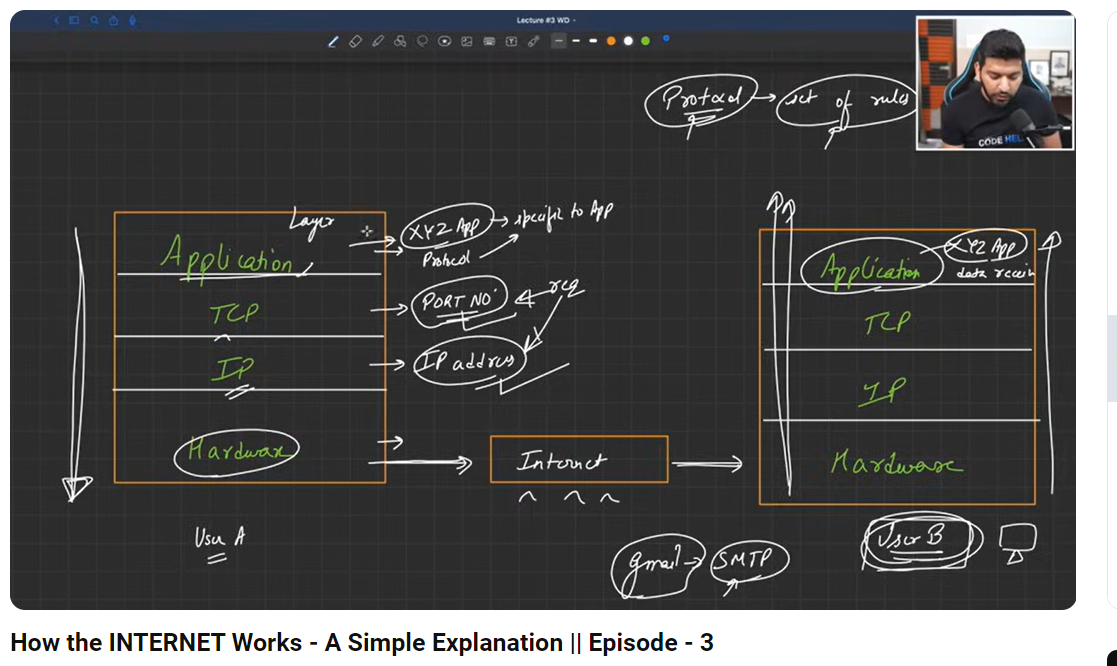 Lecture #3 WD
Protocol → set of rules
CODE HEL
Layer
Application
XYZ App → specific to App
Protocol
TCP
PORT NO.
req
IP
IP address
Hardware
Internet
User A
Application
XYZ App
data receiv
TCP
IP
Hardware
User B
gmail → SMTP
How the INTERNET Works - A Simple Explanation || Episode - 3